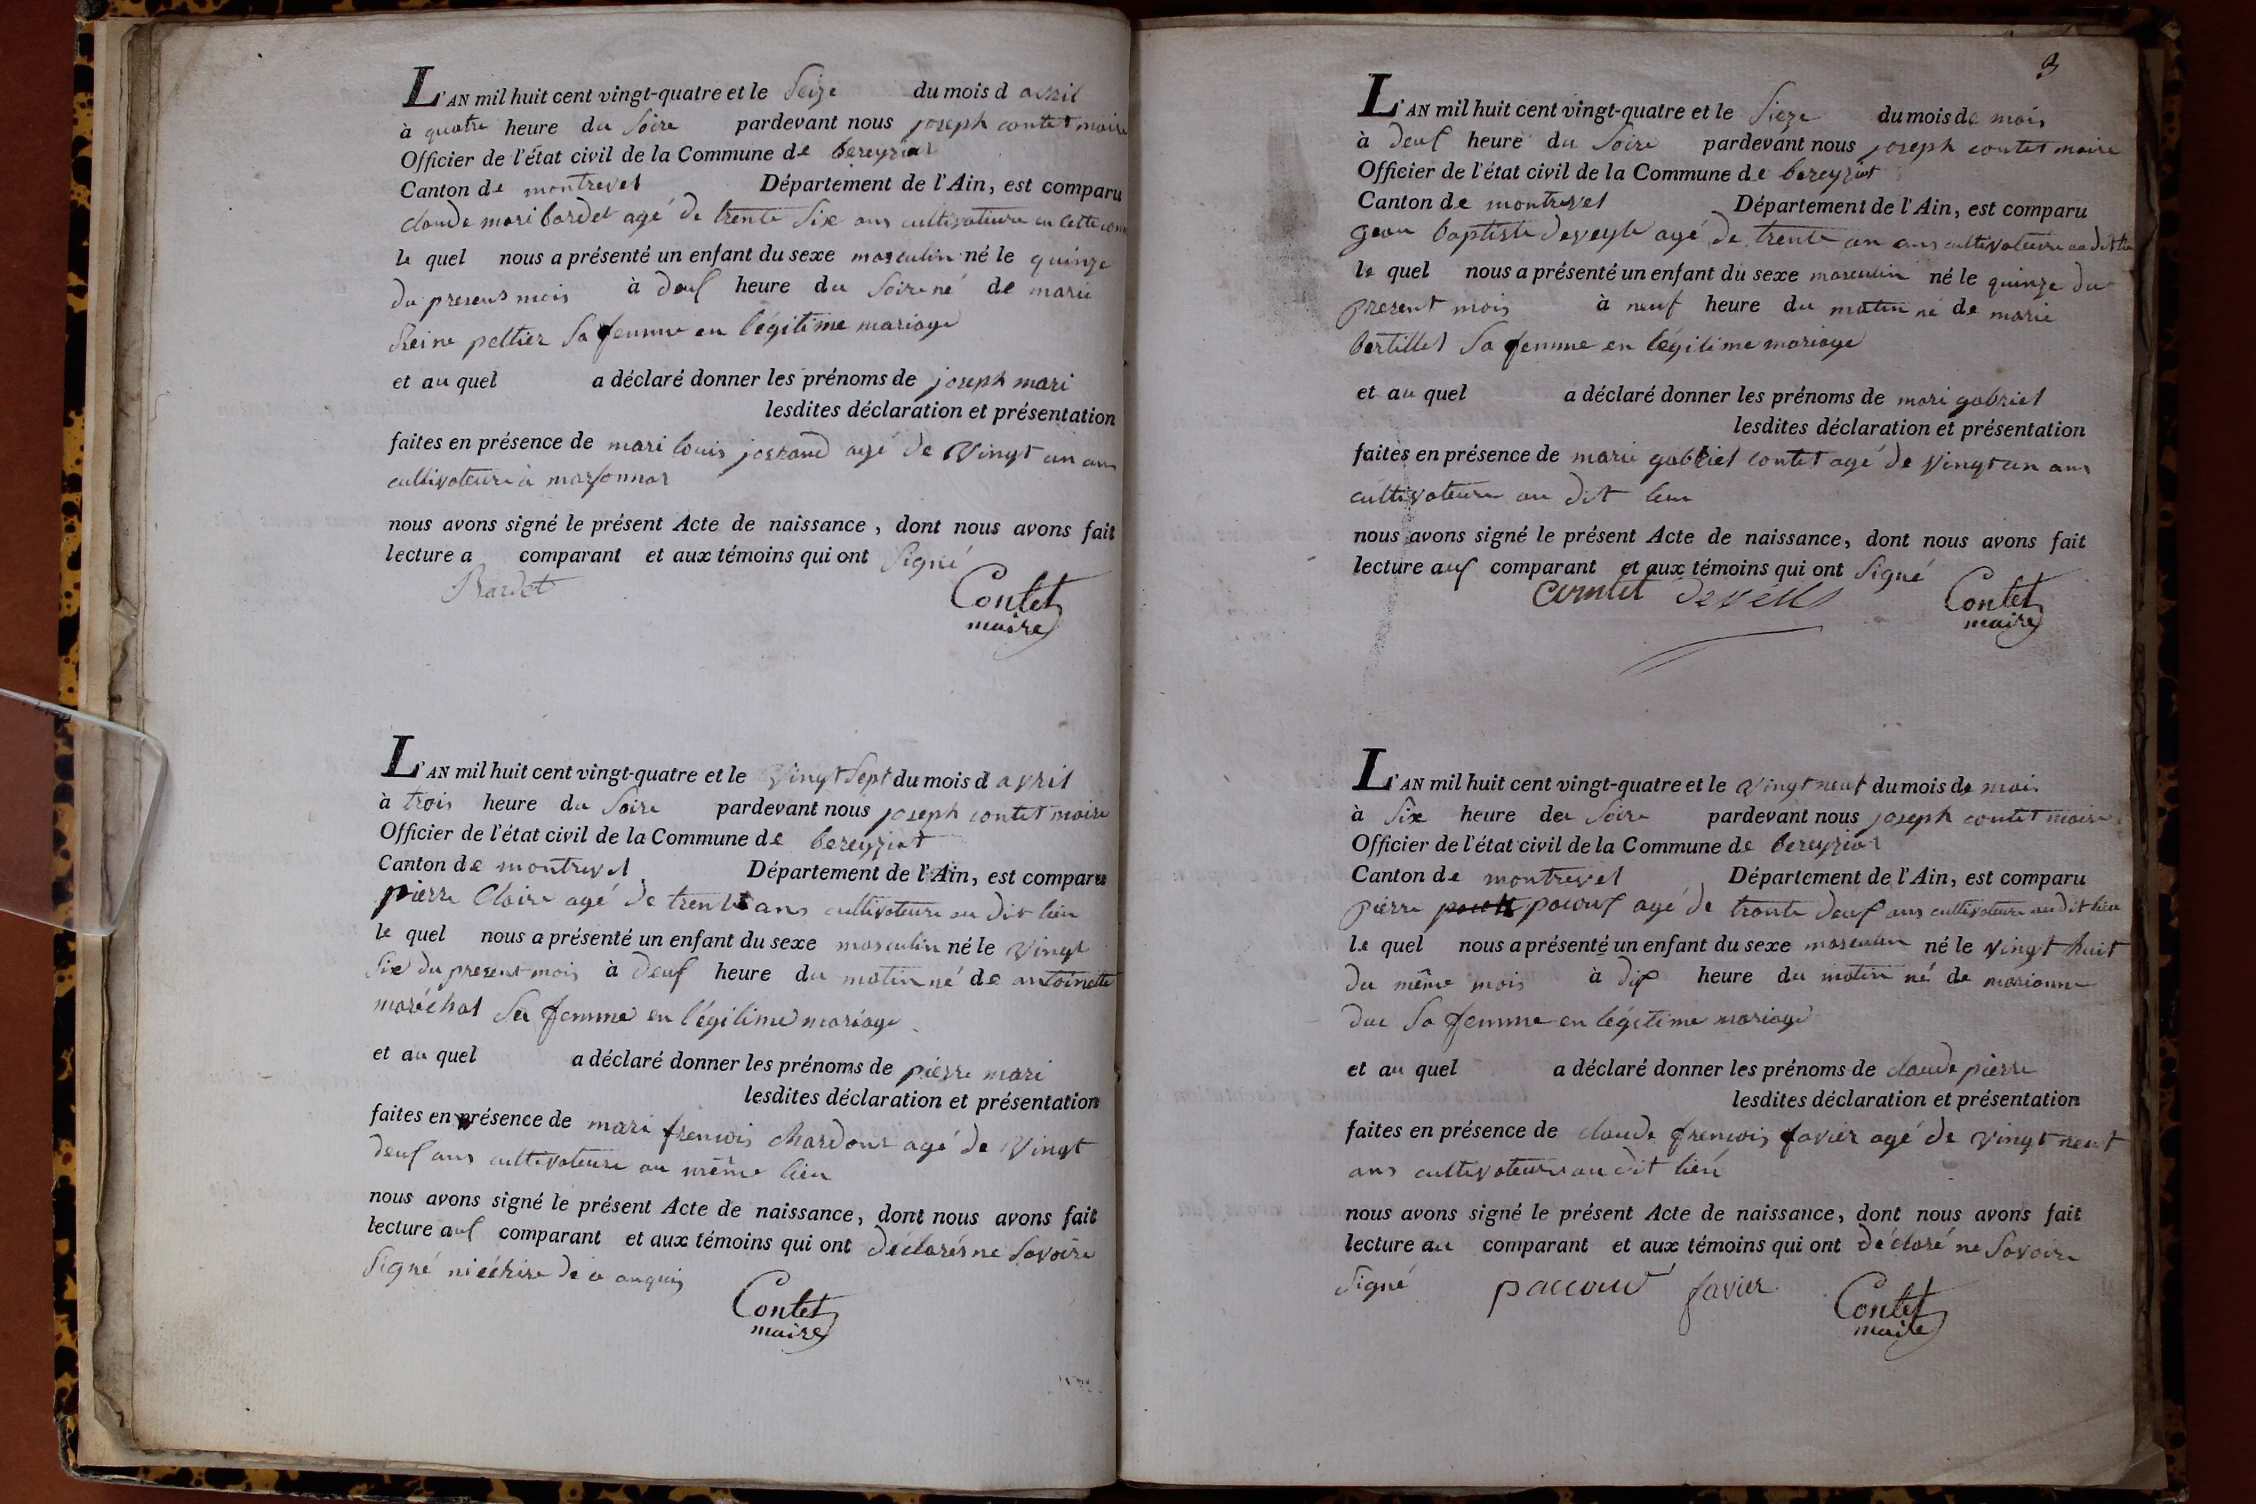 L'AN mil huit cent vingt-quatre et le Seize du mois d avril
à quatre heure du Soire pardevant nous joseph contet maire
Officier de l'état civil de la Commune de bereyziat
Canton de montrevel Département de l'Ain, est comparu
claude mari bardet agé de trente Six ans cultivateure en cette
le quel nous a présenté un enfant du sexe masculin né le quinze
du presens mois à deuf heure du Soire né de marie
Reine peltier Sa femme en légitime mariage
et au quel a déclaré donner les prénoms de joseph mari
lesdites déclaration et présentation
faites en présence de mari louis josrand agé de Vingt un ans
cultivateure à marsonnas
nous avons signé le présent Acte de naissance, dont nous avons fait
lecture a comparant et aux témoins qui ont Signé
Bardet
Contet
maire
L'AN mil huit cent vingt-quatre et le Vingt Sept du mois d avril
à trois heure du Soire pardevant nous joseph contet maire
Officier de l'état civil de la Commune de bereyziat
Canton de montrevel Département de l'Ain, est comparu
pierre Claire agé de trente ans cultivateure au dit lieu
le quel nous a présenté un enfant du sexe masculin né le Vingt
Six du present mois à deuf heure du matin né de antoinette
maréchal Sa femme en légitime mariage
et au quel a déclaré donner les prénoms de pierre mari
lesdites déclaration et présentation
faites en présence de mari frencois chardonr agé de Vingt
deuf ans cultivateure au même lieu
nous avons signé le présent Acte de naissance, dont nous avons fait
lecture auf comparant et aux témoins qui ont déclarés ne Savoire
Signé ni écrire de ce anquis
Contet
maire
3
L'AN mil huit cent vingt-quatre et le Sieze du mois de mais
à deuf heure du Soire pardevant nous joseph contet maire
Officier de l'état civil de la Commune de bereyziat
Canton de montrevel Département de l'Ain, est comparu
gean baptiste deveyle agé de trente un ans cultivateure au dit lieu
le quel nous a présenté un enfant du sexe masculin né le quinze du
present mois à neuf heure du matin né de marie
bertillet Sa femme en légitime mariage
et au quel a déclaré donner les prénoms de mari gabriel
lesdites déclaration et présentation
faites en présence de marie gabriel contet agé de Vingt un ans
cultivateure au dit lieu
nous avons signé le présent Acte de naissance, dont nous avons fait
lecture auf comparant et aux témoins qui ont Signé
comtet develle
Contet
maire
L'AN mil huit cent vingt-quatre et le Vingt neuf du mois de mais
à Six heure deu Soire pardevant nous joseph contet maire
Officier de l'état civil de la Commune de bereyziat
Canton de montrevel Département de l'Ain, est comparu
pierre pacouf agé de trante deuf ans cultivateure au dit lieu
le quel nous a présenté un enfant du sexe masculin né le vingt huit
du même mois à dix heure du matin né de marianne
duc Sa femme en légitime mariage
et au quel a déclaré donner les prénoms de claude pierre
lesdites déclaration et présentation
faites en présence de claude frencois favier agé de vingt neuf
ans cultivateure au dit lieu
nous avons signé le présent Acte de naissance, dont nous avons fait
lecture au comparant et aux témoins qui ont déclaré ne Savoire
Signé paccoud favier
Contet
maire